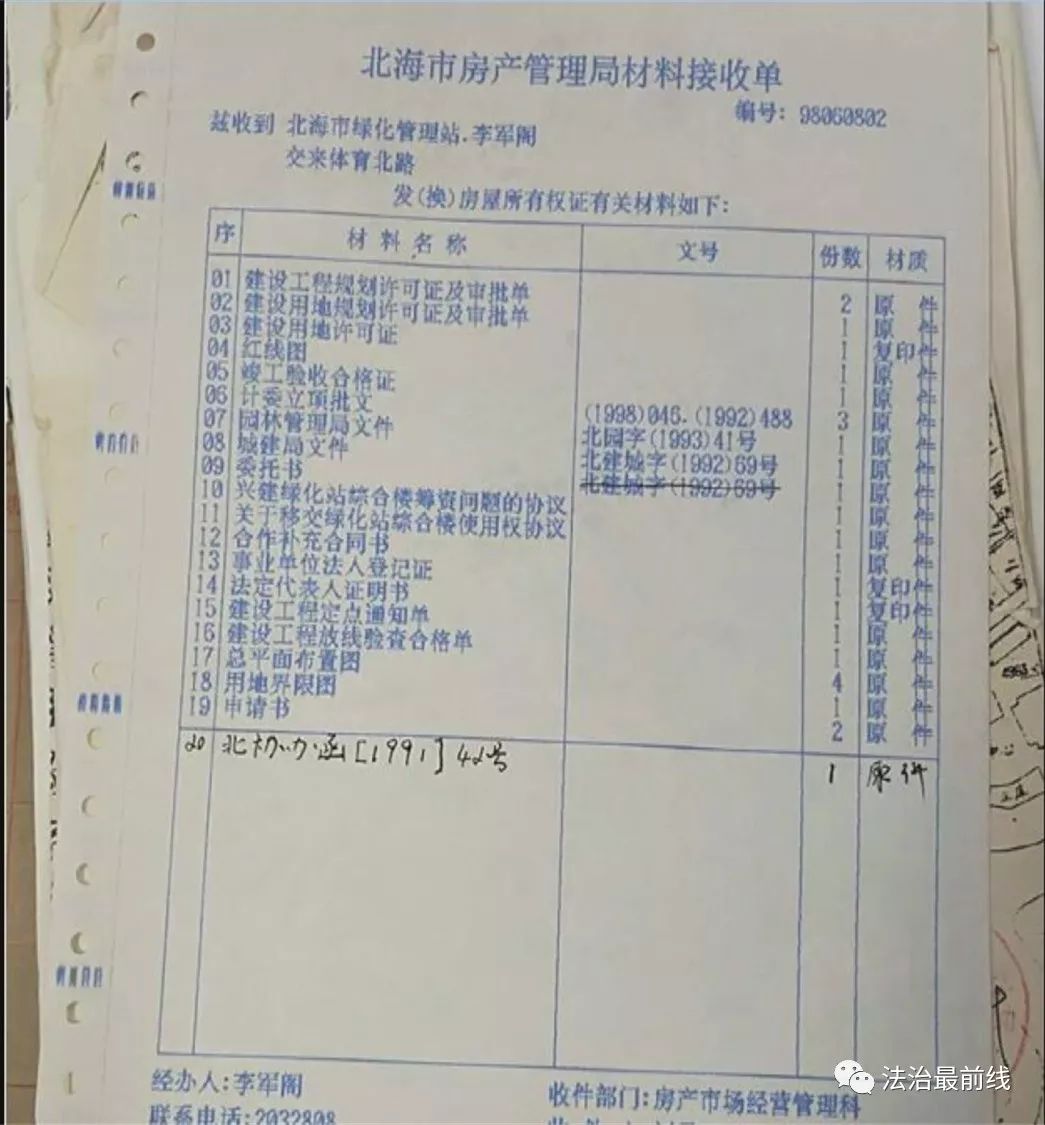 北海市房产管理局材料接收单
编号: 98060802
兹收到 北海市绿化管理站.李军阁
交来体育北路
发(换)房屋所有权证有关材料如下:
序 材料名称 文号 份数 材质
01 建设工程规划许可证及审批单 2 原件
02 建设用地规划许可证及审批单 1 原件
03 建设用地许可证 1 复印件
04 红线图 1 原件
05 竣工验收合格证 1 原件
06 计委立项批文 (1998)046.(1992)488 3 原件
07 园林管理局文件 北园字(1993)41号 1 原件
08 城建局文件 北建城字(1992)69号 1 原件
09 委托书 北建城字(1992)69号 1 原件
10 兴建绿化站综合楼筹资问题的协议 1 原件
11 关于移交绿化站综合楼使用权协议 1 原件
12 合作补充合同书 1 原件
13 事业单位法人登记证 1 复印件
14 法定代表人证明书 1 复印件
15 建设工程定点通知单 1 原件
16 建设工程放线验查合格单 1 原件
17 总平面布置图 4 原件
18 用地界限图 1 原件
19 申请书 2 原件
20 北办函[1991]42号 1 原件
经办人:李军阁
收件部门:房产市场经营管理科
联系电话:2032808
法治最前线